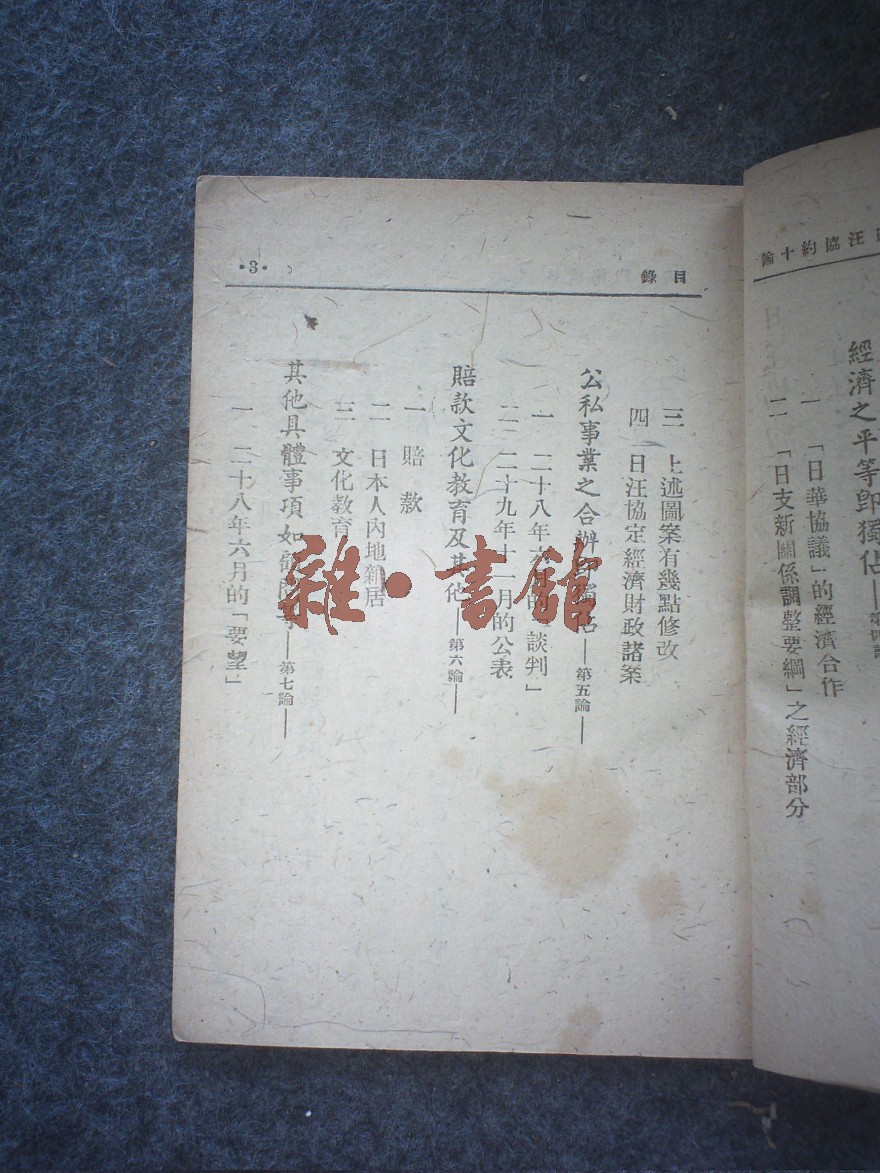 汪協約十論
經濟之平等即獨佔
一 「日華協議」的經濟合作
二 「日支新關係調整要綱」之經濟部分
目錄
·3·
三 上述圖案有幾點修改
四 日汪協定經濟財政諸案
公私事業之合辦即獨佔——第五論——
一 二十八年 談判」
二 二十九年十一月的公表
賠款文化教育及其他——第六論——
一 賠款
二 日本人內地雜居
三 文化教育
其他具體事項如顧問等——第七論——
一 二十八年六月的「要望」
雜·書館